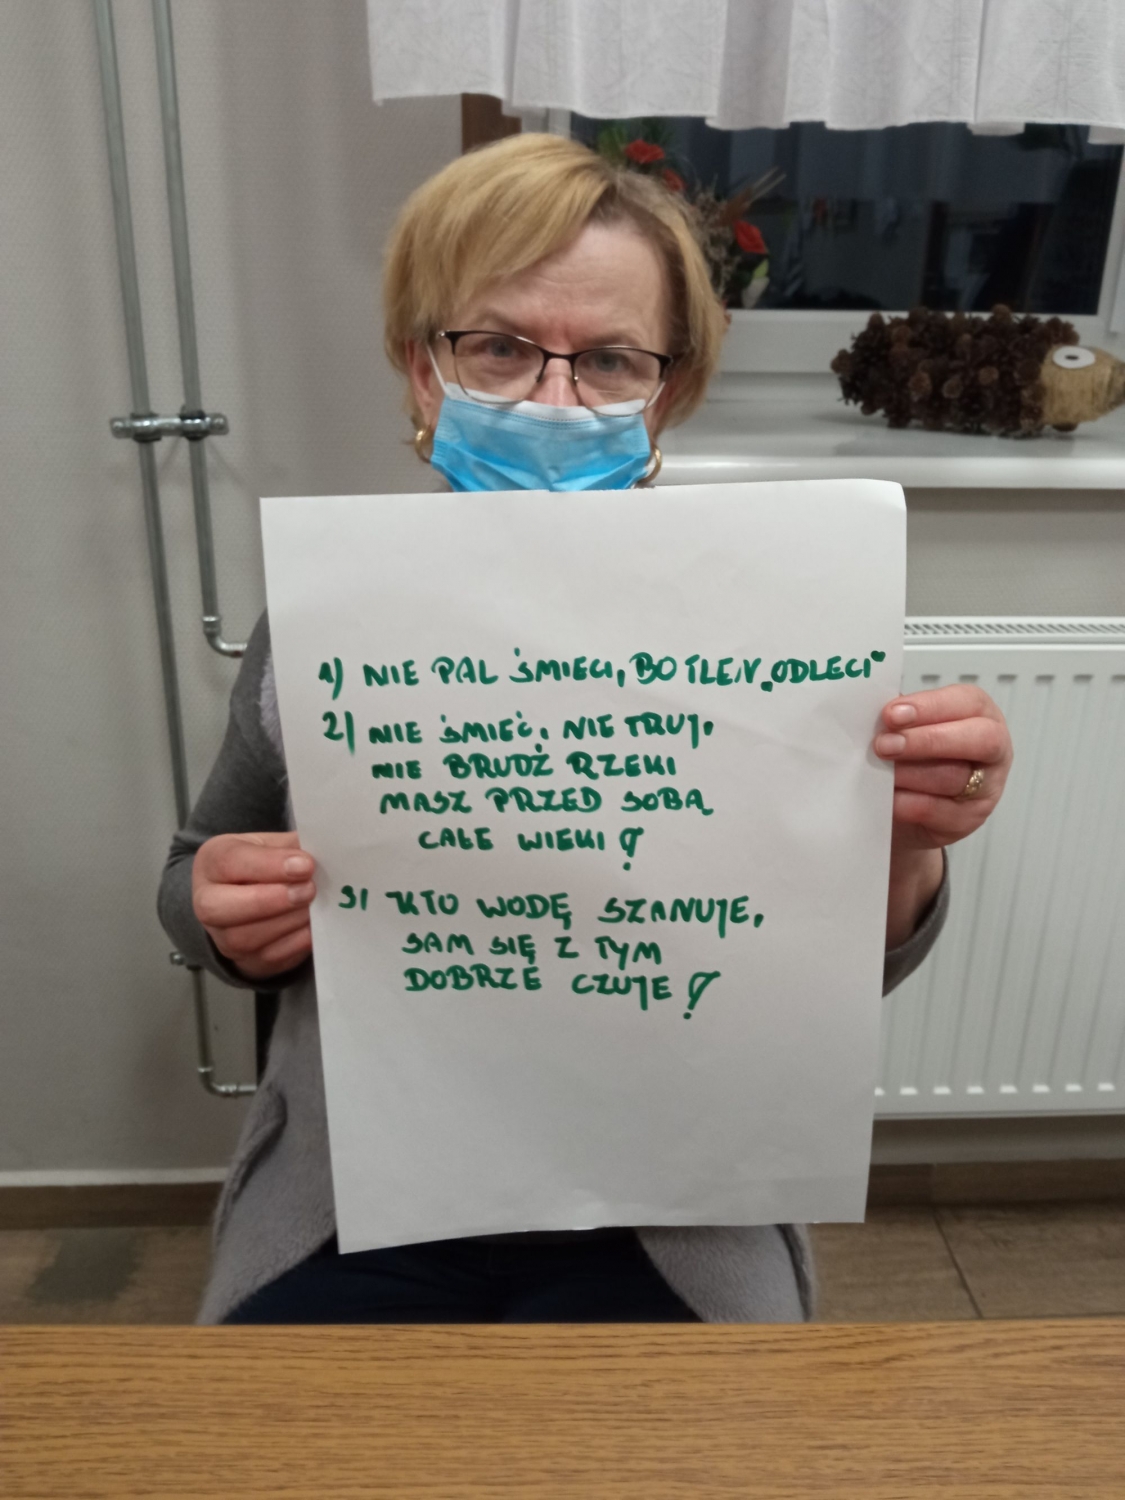 1) NIE PAL ŚMIECI, BO TLEN „ODLECI”
2) NIE ŚMIEĆ, NIE TRUJ,
NIE BRUDŹ RZEKI
MASZ PRZED SOBĄ
CAŁE WIEKI!
3) KTO WODĘ SZANUJE,
SAM SIĘ Z TYM
DOBRZE CZUJE!